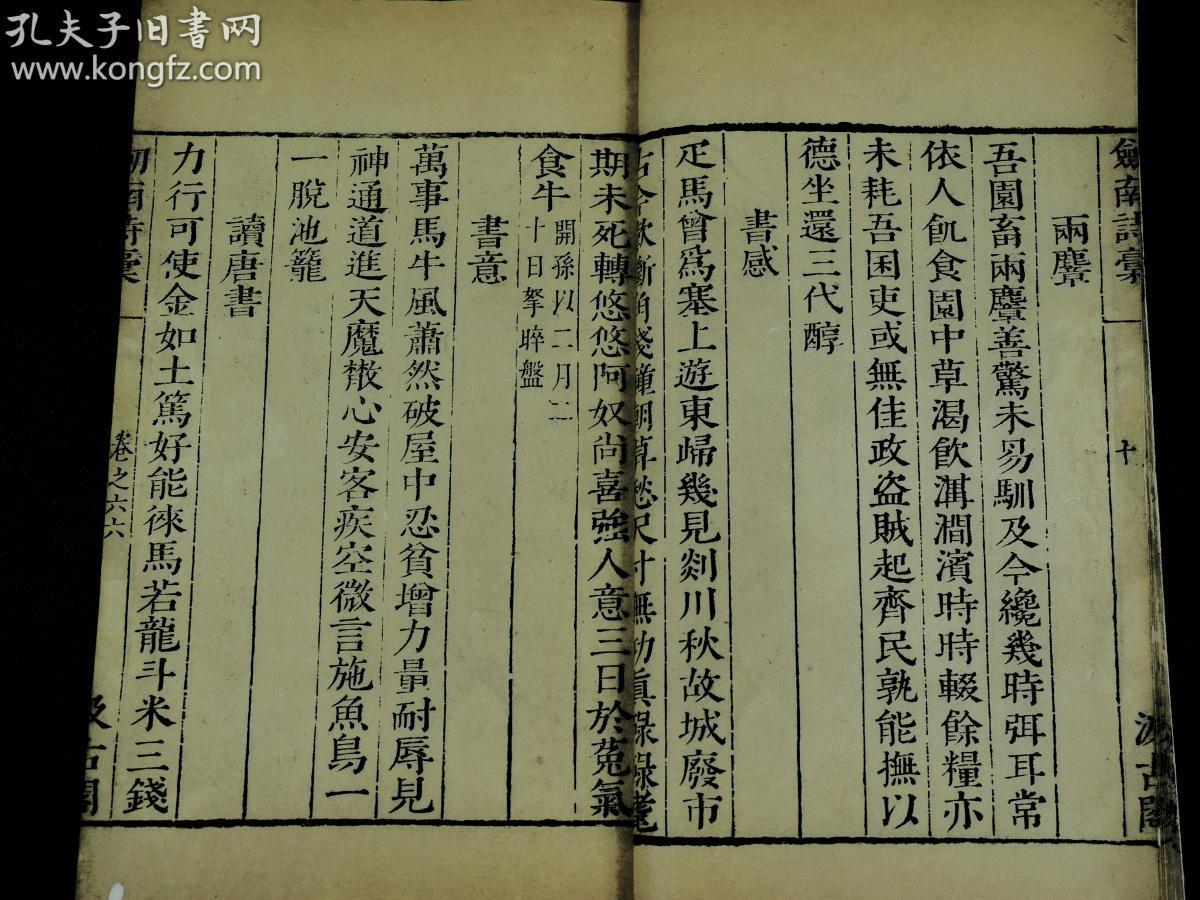 孔夫子旧书网
www.kongfz.com
劍南詩稾
十
汲古閣
兩麞
吾園畜兩麞善驚未易馴及今纔幾時弭耳常
依人飢食園中草渴飲淇澗濱時時輟餘糧亦
未耗吾囷吏或無佳政盗賊起齊民孰能撫以
德坐還三代醇
書感
疋馬曾爲塞上遊東歸幾見剡川秋故城廢市
尺寸無功眞録録耄
期未死轉悠悠阿奴尚喜強人意三日於菟氣
食牛
開孫以二月二
十日拏晬盤
書意
萬事馬牛風蕭然破屋中忍貧增力量耐辱見
神通道進天魔散心安客疾空微言施魚鳥一
一脫池籠
讀唐書
力行可使金如土篤好能徠馬若龍斗米三錢
劍南詩稾
卷之六六
汲古閣